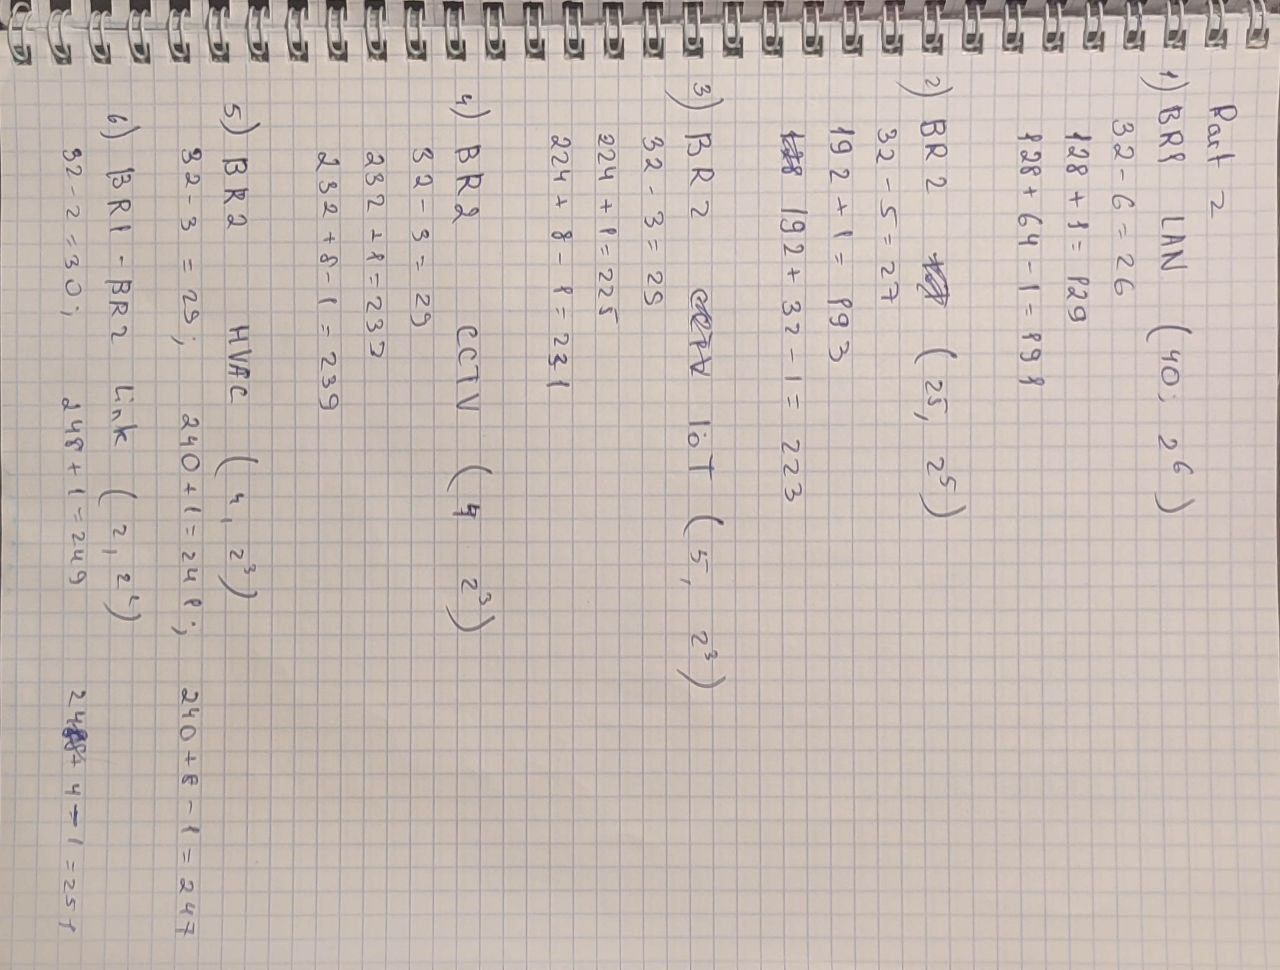 Part 2
1) BR1 LAN (40; 2^6)
32 - 6 = 26
128 + 1 = 129
128 + 64 - 1 = 191
2) BR2 (25, 2^5)
32 - 5 = 27
192 + 1 = 193
192 + 32 - 1 = 223
3) BR2 IoT (5, 2^3)
32 - 3 = 29
224 + 1 = 225
224 + 8 - 1 = 231
4) BR2 CCTV (4 2^3)
32 - 3 = 29
232 + 1 = 233
232 + 8 - 1 = 239
5) BR2 HVAC (4, 2^3)
32 - 3 = 29; 240 + 1 = 241; 240 + 8 - 1 = 247
6) BR1 - BR2 Link (2, 2^2)
32 - 2 = 30; 248 + 1 = 249 248 + 4 - 1 = 251